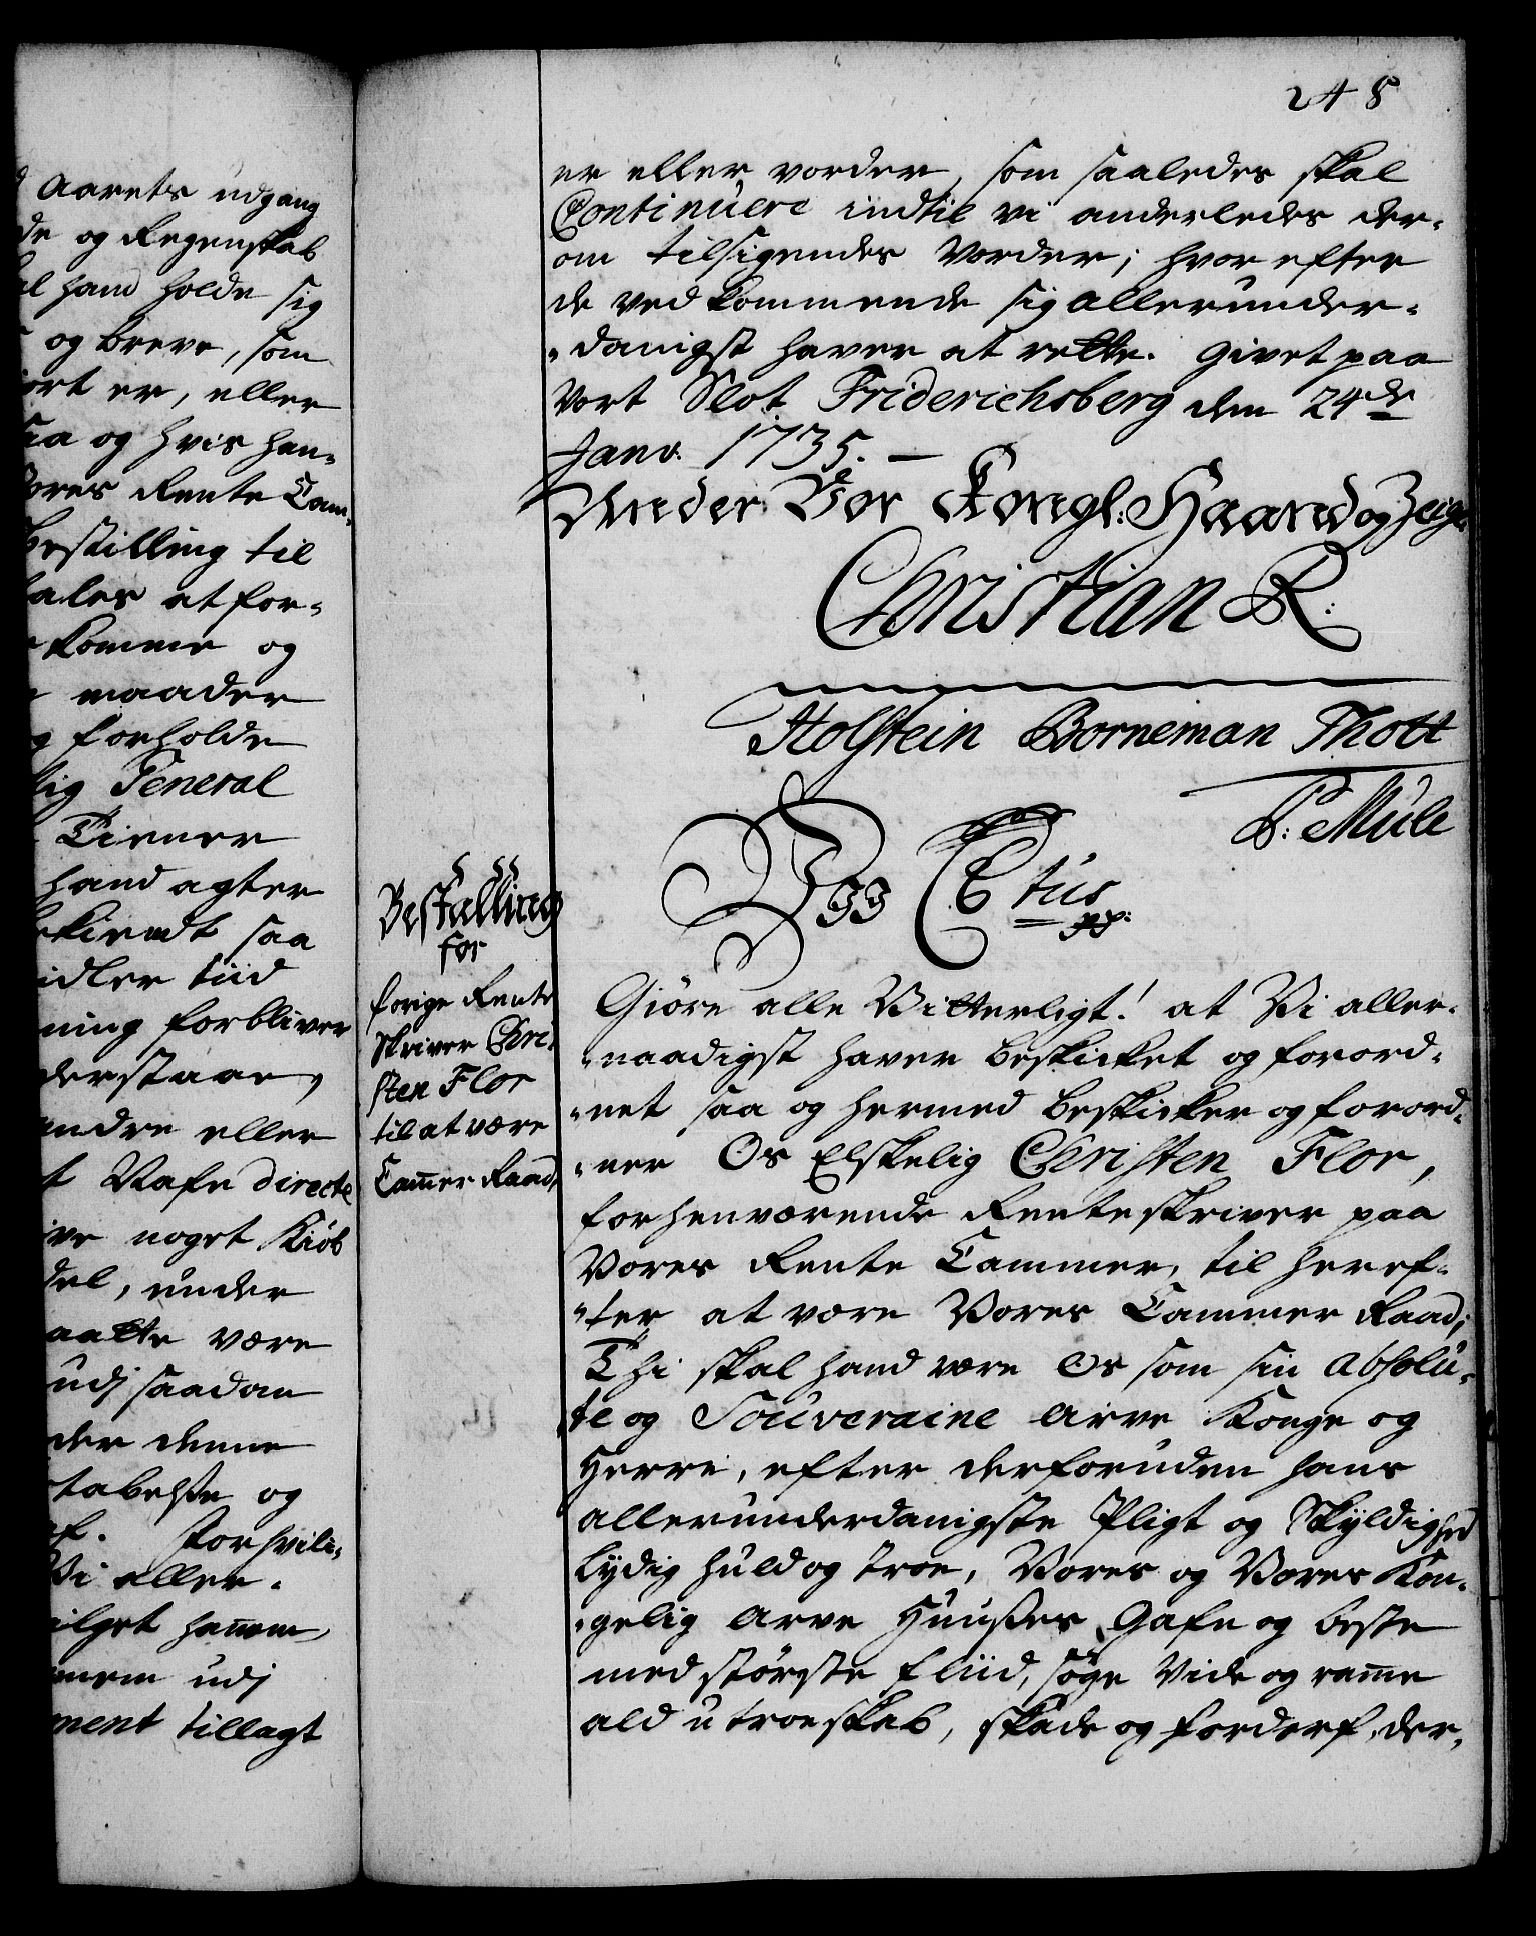 Aarets udgang
de og Regenskab
hand holde sig
og breve, som
er, eller
og hvis han-
Vores Rente Cam-
bestilling til
at for-
komme og
maader
forholde
General
Tiener
hand agter
saa
tiid
forbliver
derstaae,
andre eller
directe
noget Kiøb
under
være
udj saadan
der denne
og
Forhvili-
Vi aller-
hannem
udj
tillagt
248
er eller vorder, som saaledes skal
Continuere indtil vi anderledes der-
om tilsigendes vorder; hvorefter
de vedkommende sig allerunder-
"danigst haver at rette. Givet paa
Vort Slot Friderichsberg den 24de
Janv. 1735. —
Under Vor Kongl: Haand og Zeigl.
Christian R.
Holstein Borneman Thott
P: Mule
Bestalling
for
forige Rente
Skriver Chri-
sten Flor
til at være
Cammer Raad,
Vii C6tus
pp:
Giøre alle Vitterligt! at Vi aller-
"naadigst haver beskicket og forord-
"net saa og hermed beskicker og forord-
"ner Os Elskelig Christen Flor,
forhenværende Renteskriver paa
Vores Rente Cammer, til heref-
"ter at være Vores Cammer Raad;
Thi skal hand være Os som sin absolu-
te og Souveraine Arve Konge og
Herre, efter derforuden hans
allerunderdanigste Pligt og Skyldighed
lydig huld og troe, Vores og Vores Kon-
"gelig Arve Huußes Gafn og beste
med største fliid, søge Vide og ramme
ald utroeskab, skade og forderf, der-